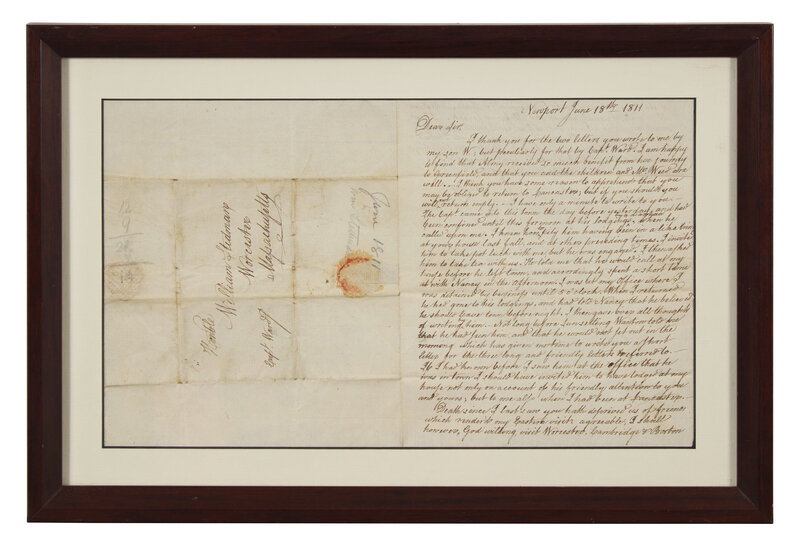 Newport June 18th 1811
Dear Sir,
I thank you for the two letters you wrote to me by
my son W. but peculiarly for that by Capt. Ward. I am happy
to find that received so much benefit from her journey
to Greenfield, and that you and the children and are
well. I think you have some reason to apprehend that you
may be obliged to return to Lancaster; but if you should you
will return. I have only a minute to write to you
The Capt. came into this town the day before yesterday, and had
been confined until this forenoon at his lodgings, when he
called upon me. I knew him, having been on a
at your house last fall, and at other preceding times. I invited
him to take pot luck with me, but he was engaged. I then asked
him to take tea with us. He told me that he would call at my
house before he left town, and accordingly spent a short time
at with Nancy in the afternoon. I was at my office where I
was detained by business until o'clock. When I returned
he had gone to his lodgings, and had told Nancy that he believed
he should leave town before night. I then gave over all thoughts
of writing by him. Not long before sunsetting told me
that he had seen him, and that he would not set out in the
morning which has given me time to write you a short
letter for the three long and friendly letters referred to.
If I had known before I saw him at the office that he
was in town I should have invited him to have lodged at my
house not only on account of his friendly attention to you
and yours, but to me also when I had been at Lancaster.
Death since I last saw you hath deprived us of a friend
which renders my Eastern visits agreeable, I shall
however, God willing, visit Worcester, Cambridge & Boston
Honble
William Stedman
Worcester
Massachusetts
Capt Ward
June 1811